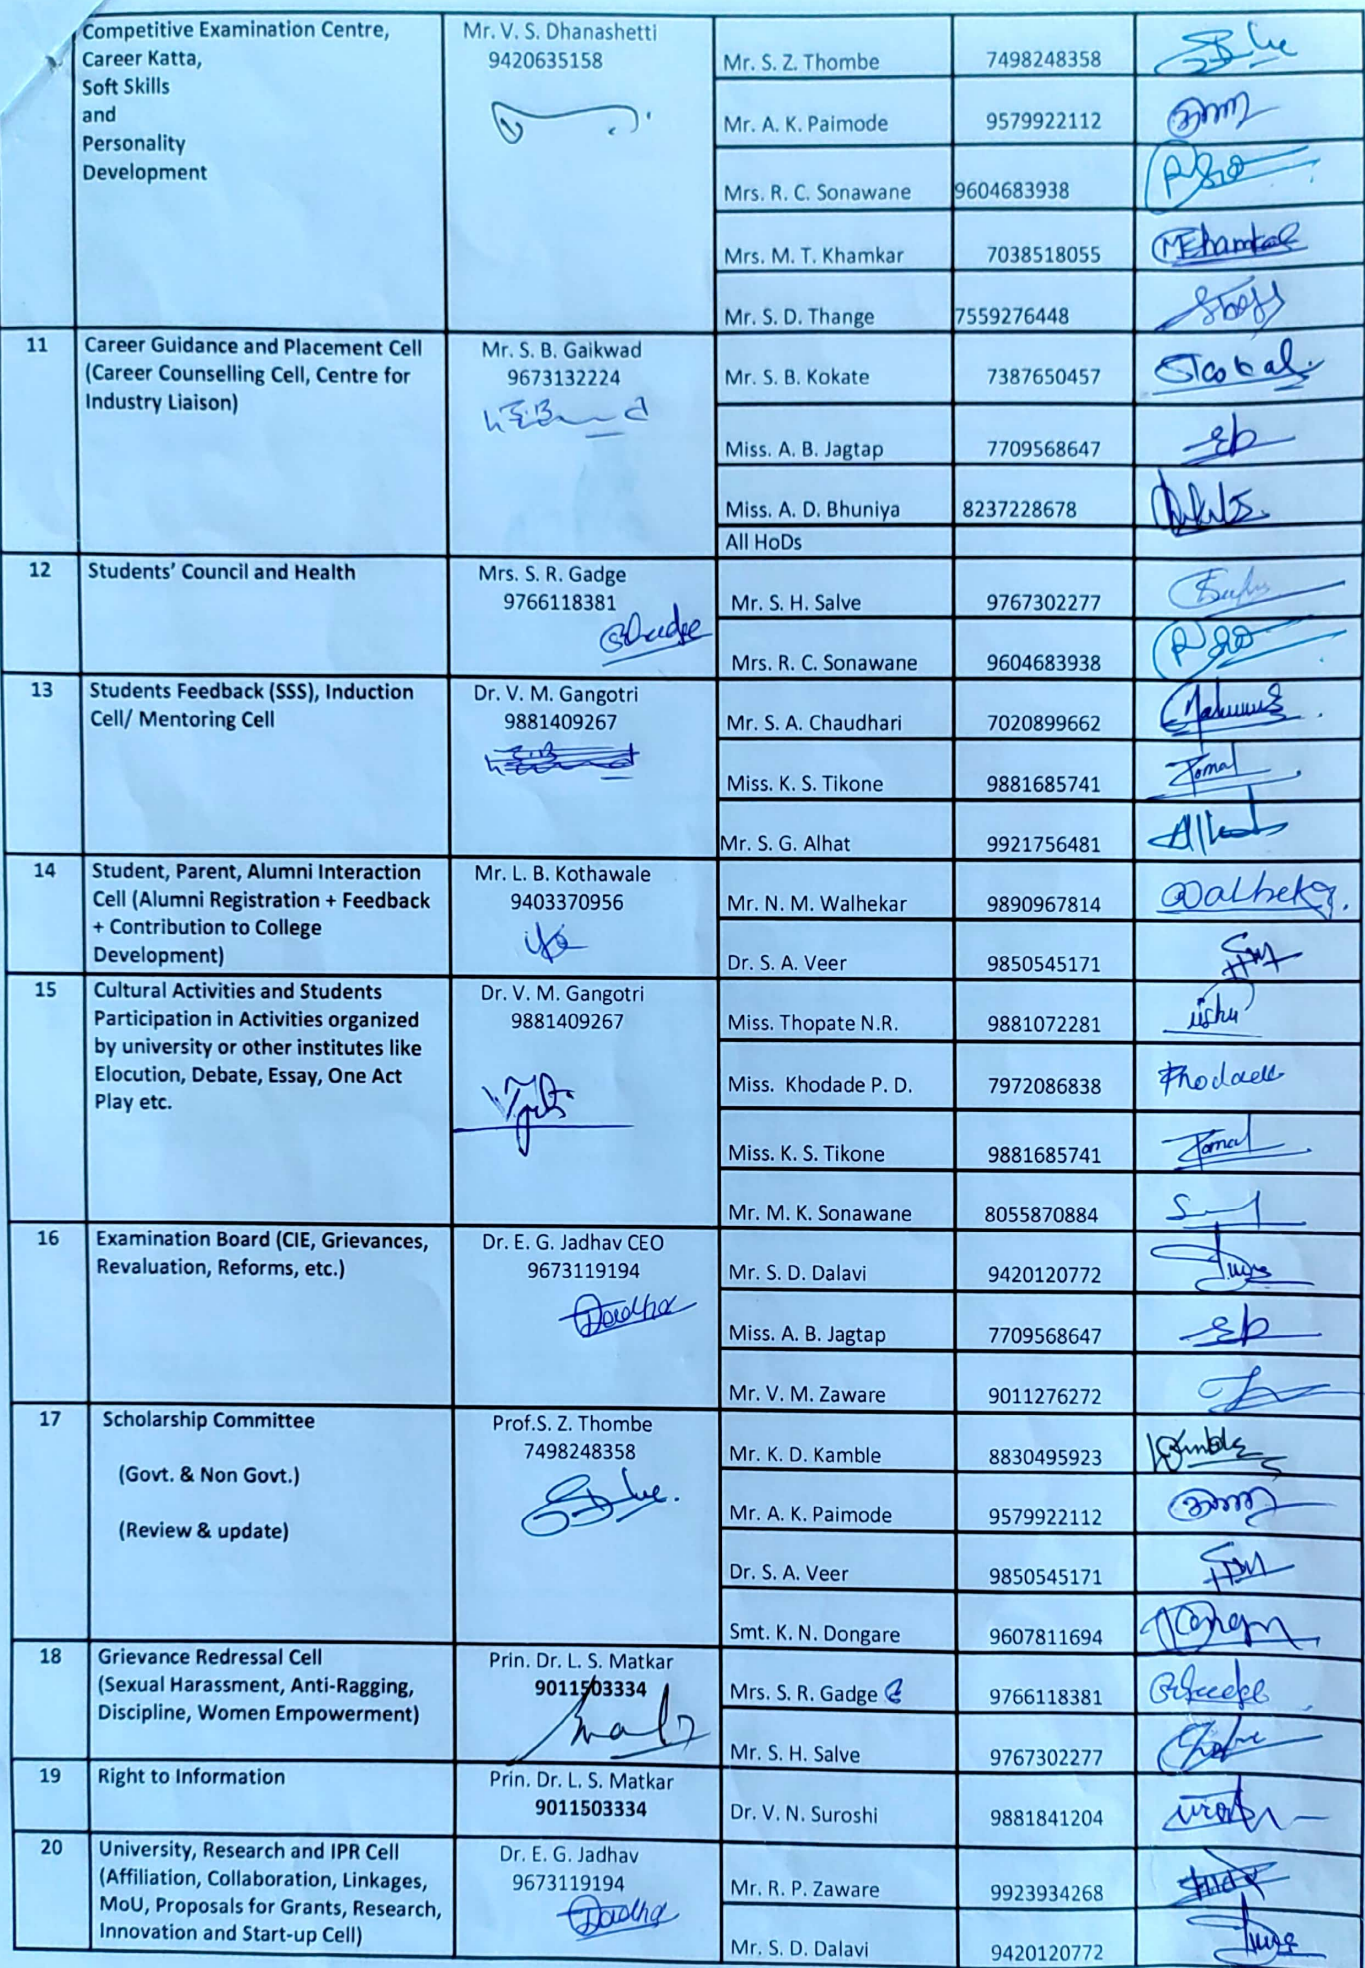 Competitive Examination Centre,
Career Katta,
Soft Skills
and
Personality
Development
Mr. V. S. Dhanashetti
9420635158
Mr. S. Z. Thombe 7498248358
Mr. A. K. Paimode 9579922112
Mrs. R. C. Sonawane 9604683938
Mrs. M. T. Khamkar 7038518055
Mr. S. D. Thange 7559276448
11 Career Guidance and Placement Cell
(Career Counselling Cell, Centre for
Industry Liaison)
Mr. S. B. Gaikwad
9673132224
Mr. S. B. Kokate 7387650457
Miss. A. B. Jagtap 7709568647
Miss. A. D. Bhuniya 8237228678
All HoDs
12 Students’ Council and Health
Mrs. S. R. Gadge
9766118381
Mr. S. H. Salve 9767302277
Mrs. R. C. Sonawane 9604683938
13 Students Feedback (SSS), Induction
Cell/ Mentoring Cell
Dr. V. M. Gangotri
9881409267
Mr. S. A. Chaudhari 7020899662
Miss. K. S. Tikone 9881685741
Mr. S. G. Alhat 9921756481
14 Student, Parent, Alumni Interaction
Cell (Alumni Registration + Feedback
+ Contribution to College
Development)
Mr. L. B. Kothawale
9403370956
Mr. N. M. Walhekar 9890967814
Dr. S. A. Veer 9850545171
15 Cultural Activities and Students
Participation in Activities organized
by university or other institutes like
Elocution, Debate, Essay, One Act
Play etc.
Dr. V. M. Gangotri
9881409267
Miss. Thopate N.R. 9881072281
Miss. Khodade P. D. 7972086838
Miss. K. S. Tikone 9881685741
Mr. M. K. Sonawane 8055870884
16 Examination Board (CIE, Grievances,
Revaluation, Reforms, etc.)
Dr. E. G. Jadhav CEO
9673119194
Mr. S. D. Dalavi 9420120772
Miss. A. B. Jagtap 7709568647
Mr. V. M. Zaware 9011276272
17 Scholarship Committee
(Govt. & Non Govt.)
(Review & update)
Prof.S. Z. Thombe
7498248358
Mr. K. D. Kamble 8830495923
Mr. A. K. Paimode 9579922112
Dr. S. A. Veer 9850545171
Smt. K. N. Dongare 9607811694
18 Grievance Redressal Cell
(Sexual Harassment, Anti-Ragging,
Discipline, Women Empowerment)
Prin. Dr. L. S. Matkar
9011503334
Mrs. S. R. Gadge 9766118381
Mr. S. H. Salve 9767302277
19 Right to Information
Prin. Dr. L. S. Matkar
9011503334
Dr. V. N. Suroshi 9881841204
20 University, Research and IPR Cell
(Affiliation, Collaboration, Linkages,
MoU, Proposals for Grants, Research,
Innovation and Start-up Cell)
Dr. E. G. Jadhav
9673119194
Mr. R. P. Zaware 9923934268
Mr. S. D. Dalavi 9420120772